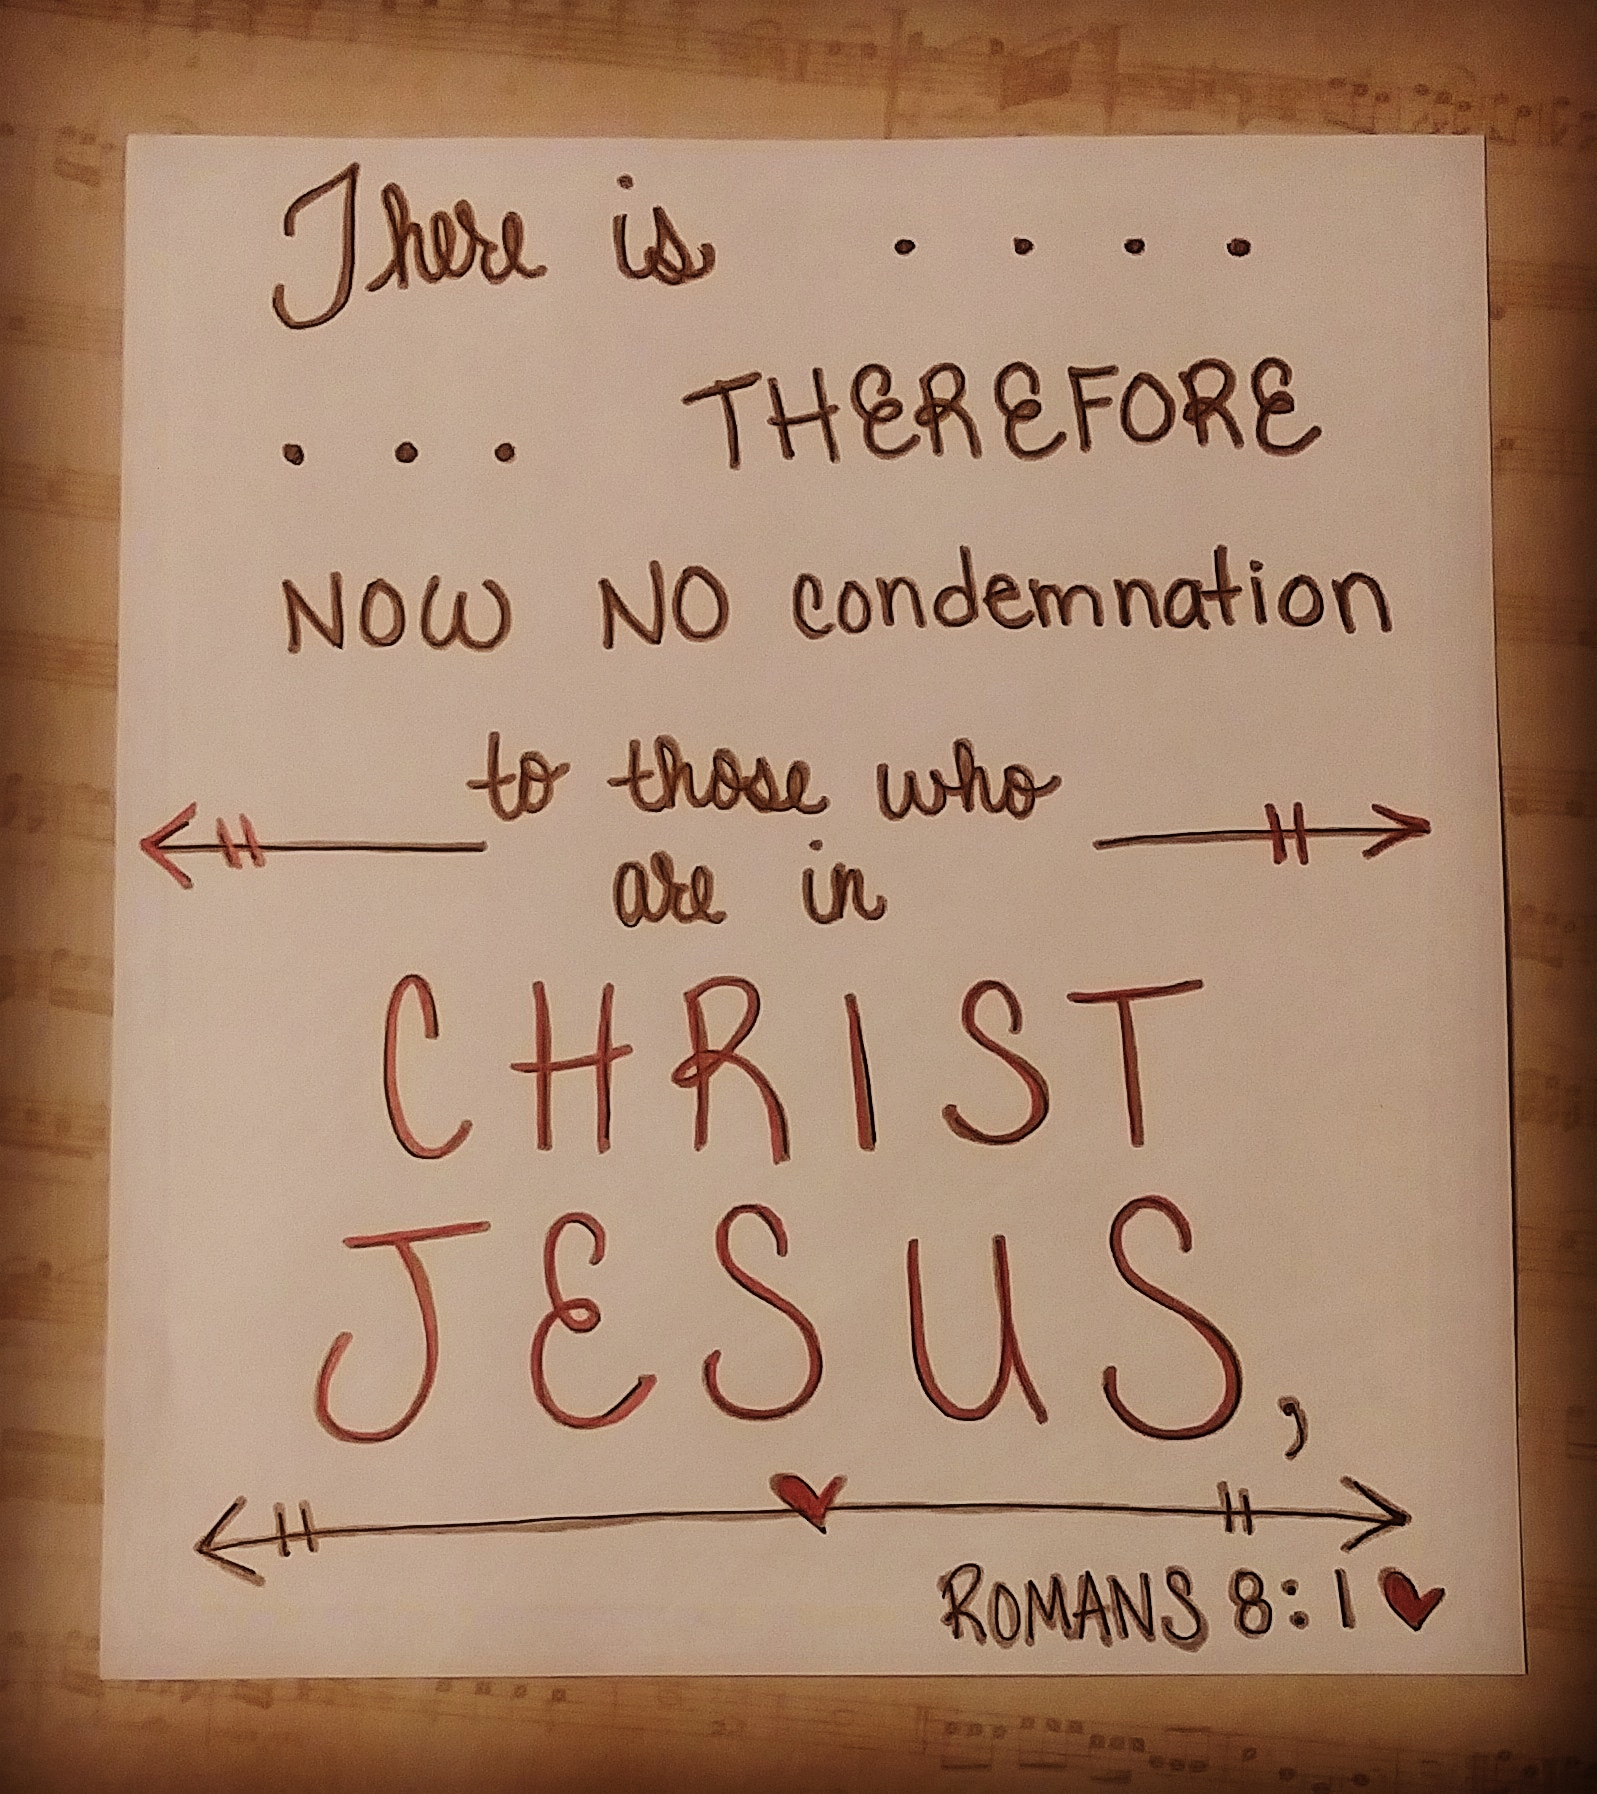 There is . . . .
. . . THEREFORE
NOW NO condemnation
to those who
are in
CHRIST
JESUS,
ROMANS 8:1